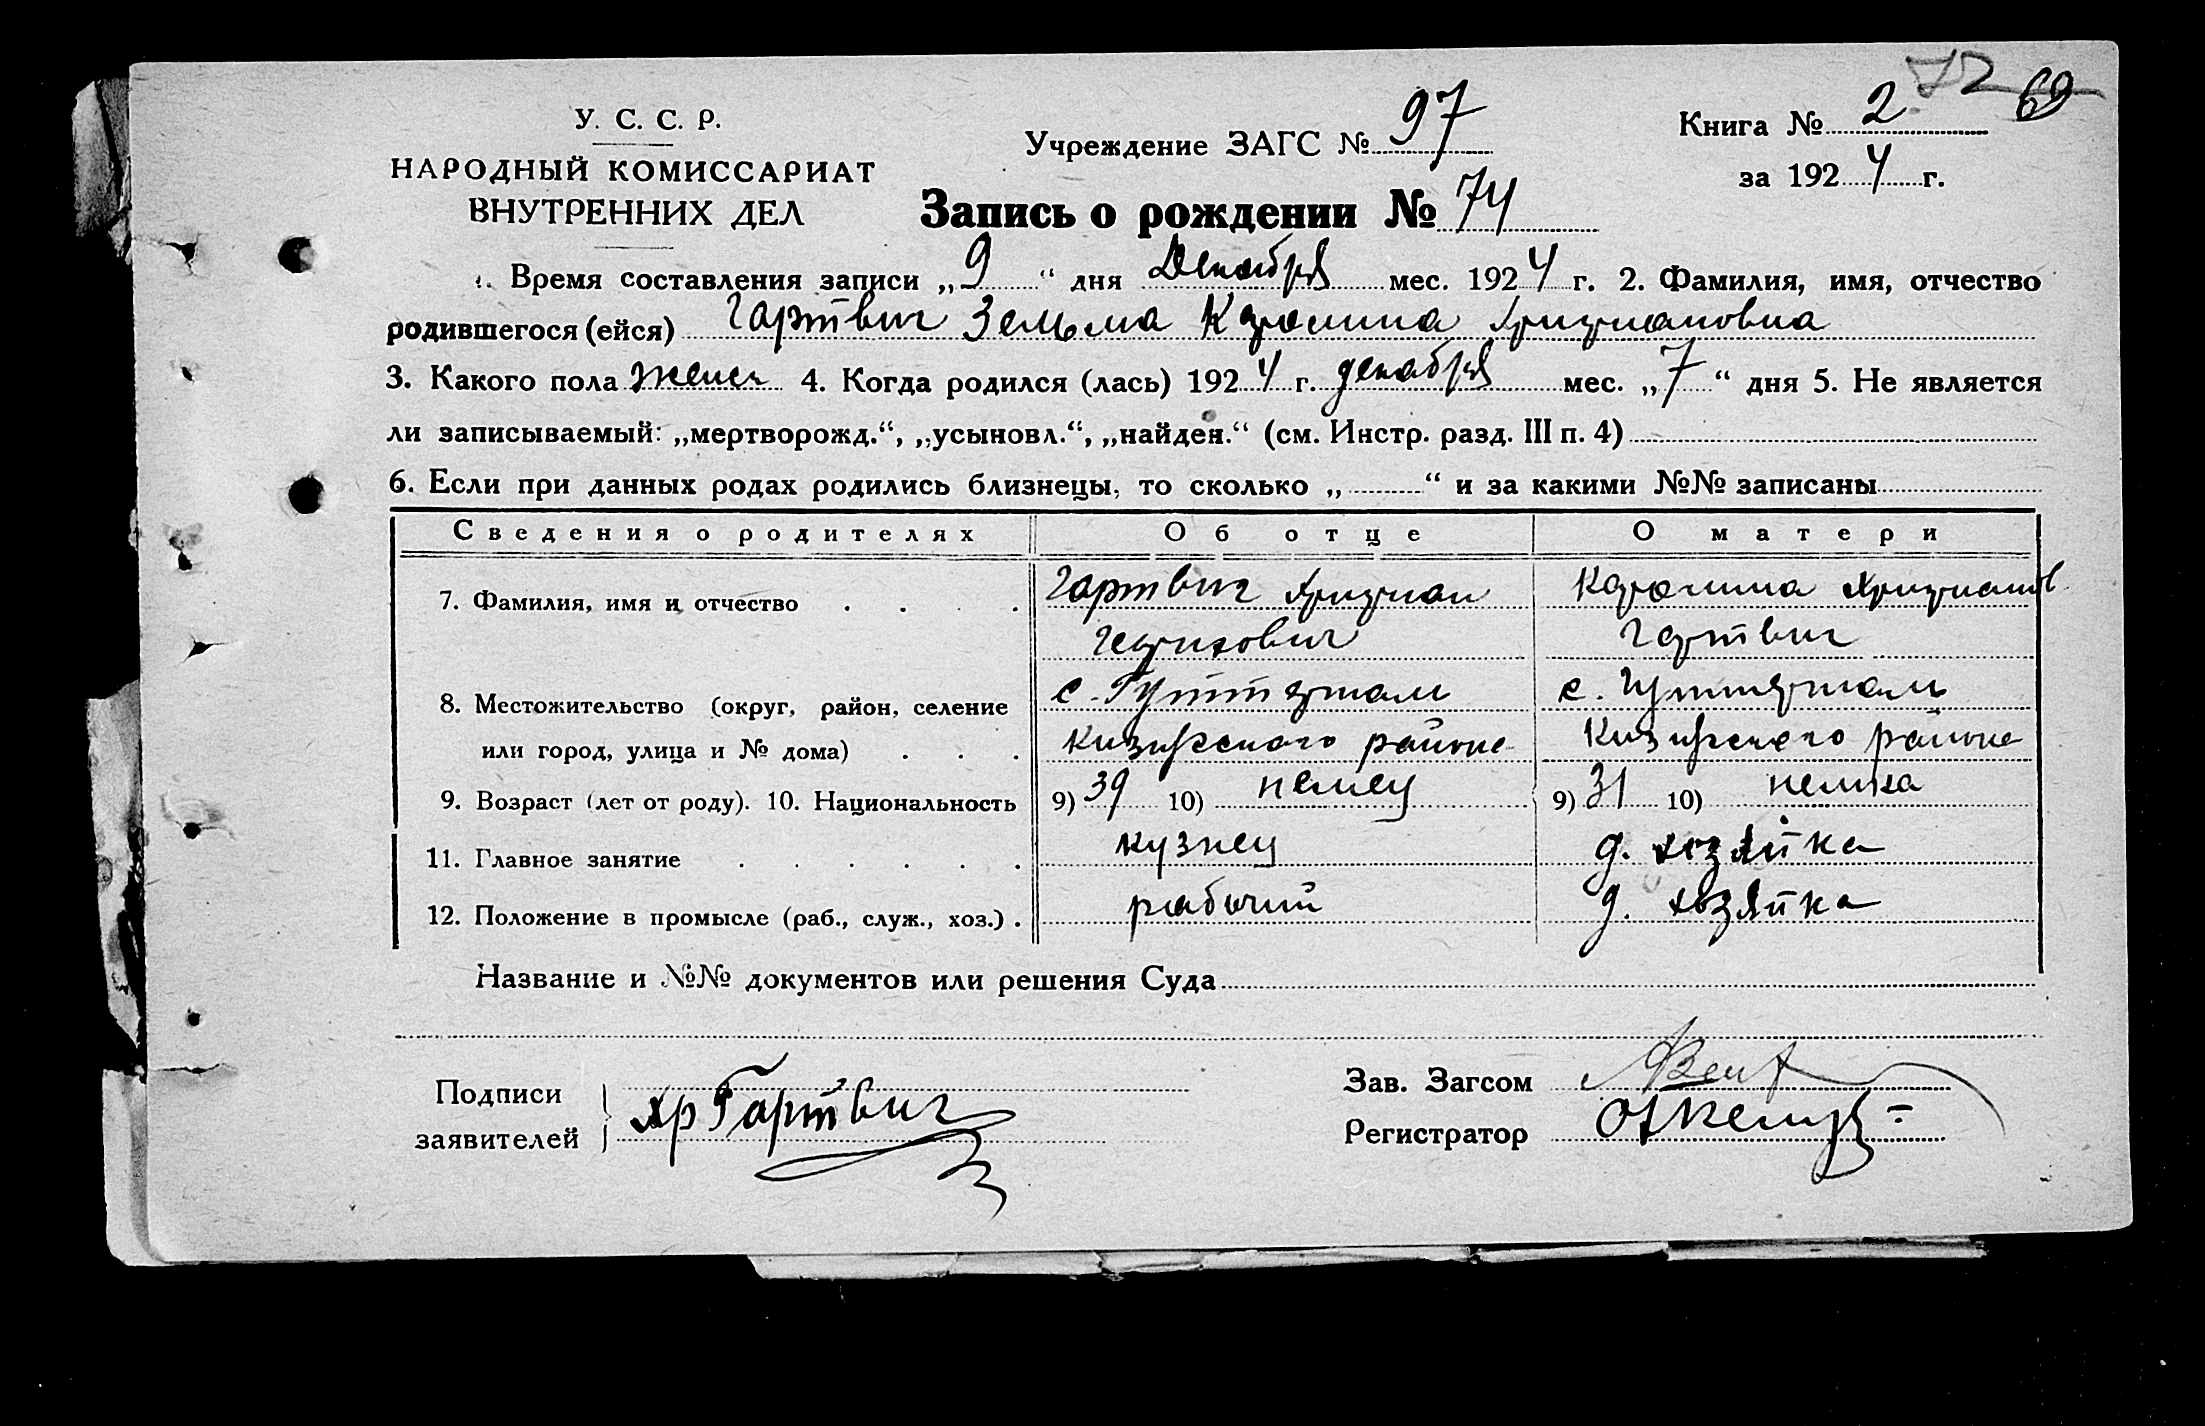 72 69
У. С. С. Р.
НАРОДНЫЙ КОМИССАРИАТ
ВНУТРЕННИХ ДЕЛ
Учреждение ЗАГС № 97
Книга № 2
за 1924 г.
Запись о рождении № 74
1. Время составления записи „9“ дня Декабря мес. 1924 г. 2. Фамилия, имя, отчество
родившегося (ейся) Гартвиг Зельма Каролина Христиановна
3. Какого пола женск 4. Когда родился (лась) 1924 г. декабря мес. „7“ дня 5. Не является
ли записываемый: „мертворожд.“, „усыновл.“, „найден.“ (см. Инстр. разд. III п. 4)
6. Если при данных родах родились близнецы, то сколько „ “ и за какими №№ записаны
Сведения о родителях Об отце О матери
7. Фамилия, имя и отчество Гартвиг Християн Каролина Християнов
Гартвиг
8. Местожительство (округ, район, селение с. Гуттерталь с. Гуттерталь
или город, улица и № дома) района района
9. Возраст (лет от роду). 10. Национальность 9) 39 10) немец 9) 31 10) немка
11. Главное занятие кузнец д. хозяйка
12. Положение в промысле (раб., служ., хоз.) рабочий д. хозяйка
Название и №№ документов или решения Суда
Подписи
заявителей Хр Гартвиг
Зав. Загсом
Регистратор